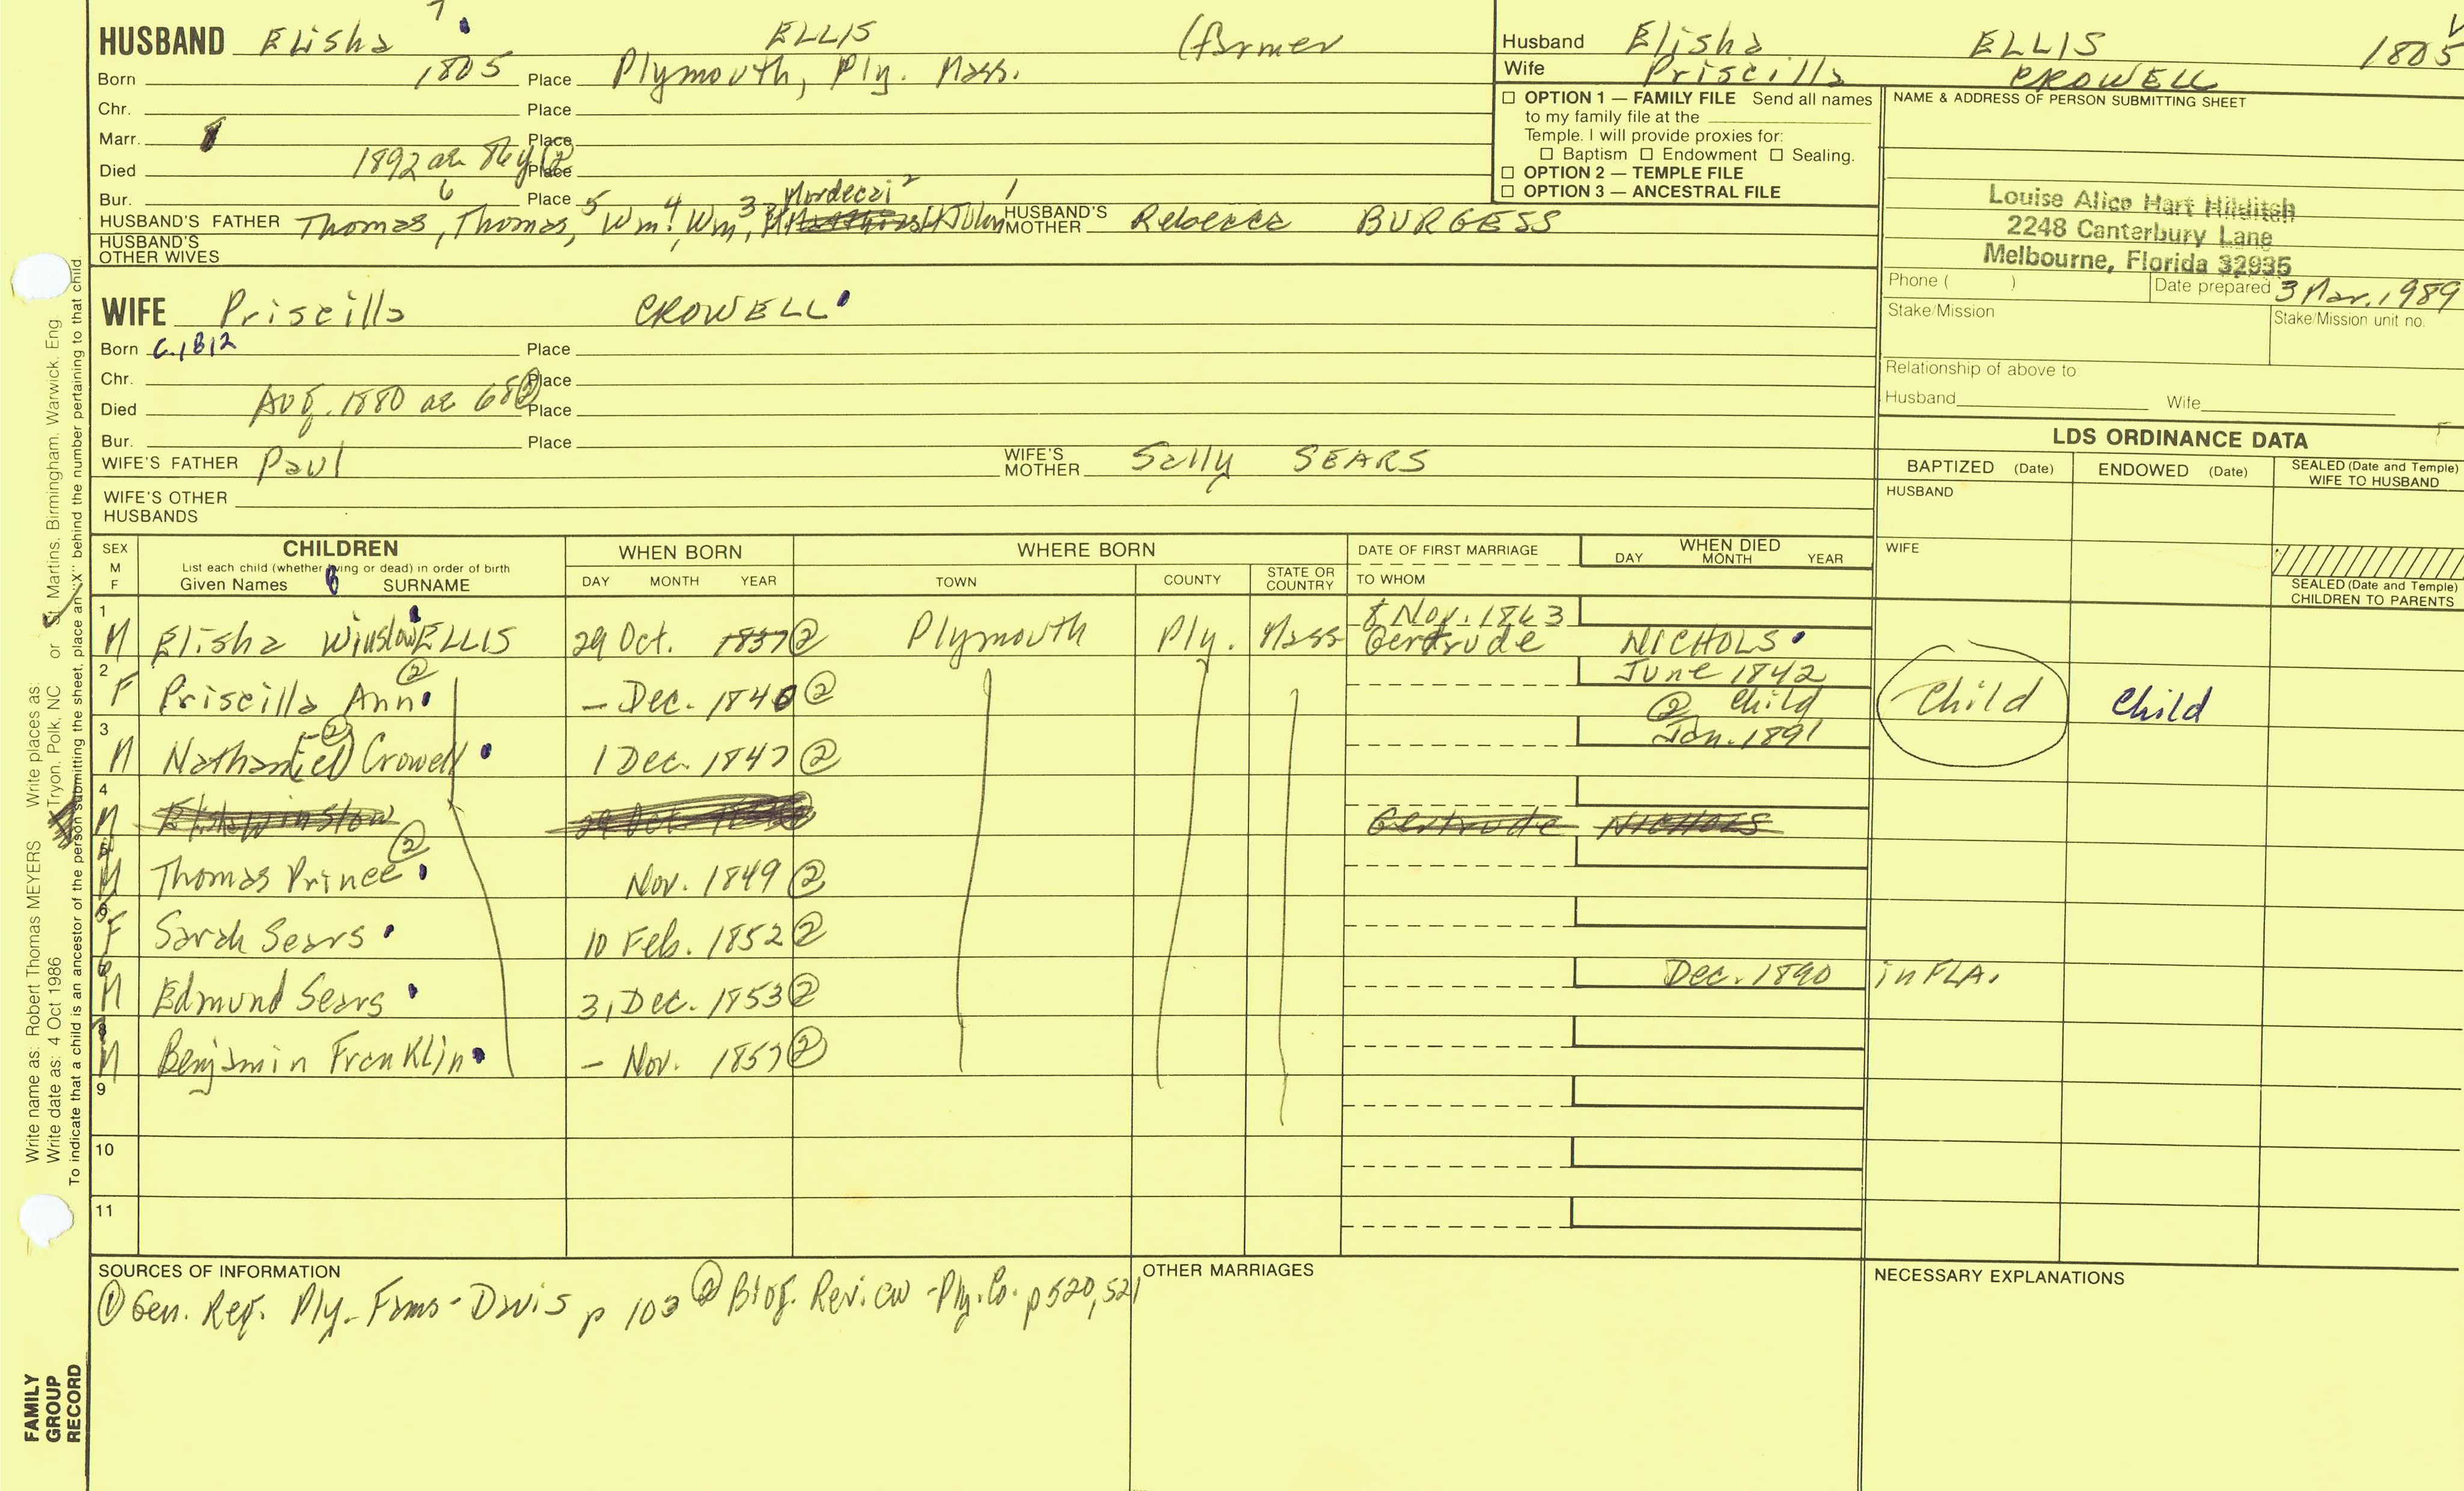 HUSBAND Elisha 7 ELLIS (farmer
Born 1805 Place Plymouth, Ply. Mass.
Chr. Place
Marr. Place
Died 1892 ae Place
Bur. Place
HUSBAND'S FATHER Thomas, 6 Thomas, 5 Wm, 4 Wm, 3 Mordecai 2 John 1 HUSBAND'S MOTHER Rebecca BURGESS
HUSBAND'S OTHER WIVES
WIFE Priscilla CROWELL
Born c.1812 Place
Chr. Place
Died Aug. 1880 ae 68 ② Place
Bur. Place
WIFE'S FATHER Paul WIFE'S MOTHER Sally SEARS
WIFE'S OTHER HUSBANDS
Husband Elisha ELLIS 1805
Wife Priscilla CROWELL
☐ OPTION 1 — FAMILY FILE Send all names
to my family file at the
Temple. I will provide proxies for:
☐ Baptism ☐ Endowment ☐ Sealing.
☐ OPTION 2 — TEMPLE FILE
☐ OPTION 3 — ANCESTRAL FILE
NAME & ADDRESS OF PERSON SUBMITTING SHEET
Louise Alice Hart Hilditch
2248 Canterbury Lane
Melbourne, Florida 32935
Phone ( ) Date prepared 3 Mar. 1989
Stake/Mission Stake/Mission unit no.
Relationship of above to
Husband Wife
LDS ORDINANCE DATA
BAPTIZED (Date) ENDOWED (Date) SEALED (Date and Temple) WIFE TO HUSBAND
HUSBAND
WIFE
SEALED (Date and Temple) CHILDREN TO PARENTS
SEX M F
CHILDREN
List each child (whether living or dead) in order of birth
Given Names SURNAME
WHEN BORN
DAY MONTH YEAR
WHERE BORN
TOWN COUNTY STATE OR COUNTRY
DATE OF FIRST MARRIAGE
TO WHOM
WHEN DIED
DAY MONTH YEAR
1 M Elisha Winslow ELLIS 29 Oct. 1837 ② Plymouth Ply. Mass 8 Nov. 1863 Gertrude NICHOLS
2 F Priscilla Ann ② – Dec. 1840 ② June 1842 ② Child Child Child
3 M Nathaniel Crowell ② 1 Dec. 1847 ② Jan. 1891
4 M Elisha Winslow 29 Oct. Gertrude NICHOLS
5 M Thomas Prince ② Nov. 1849 ②
6 F Sarah Sears 10 Feb. 1852 ②
M Edmund Sears 31 Dec. 1853 ② Dec. 1890 in FLA.
8 M Benjamin Franklin – Nov. 1857 ②
9
10
11
SOURCES OF INFORMATION
① Gen. Reg. Ply. Fams - Davis p 103 ② Biog. Review - Ply. Co. p 520, 521
OTHER MARRIAGES
NECESSARY EXPLANATIONS
Write name as: Robert Thomas MEYERS Write places as: Tryon, Polk, NC or St. Martins, Birmingham, Warwick, Eng
Write date as: 4 Oct 1986
To indicate that a child is an ancestor of the person submitting the sheet, place an "X" behind the number pertaining to that child.
FAMILY
GROUP
RECORD